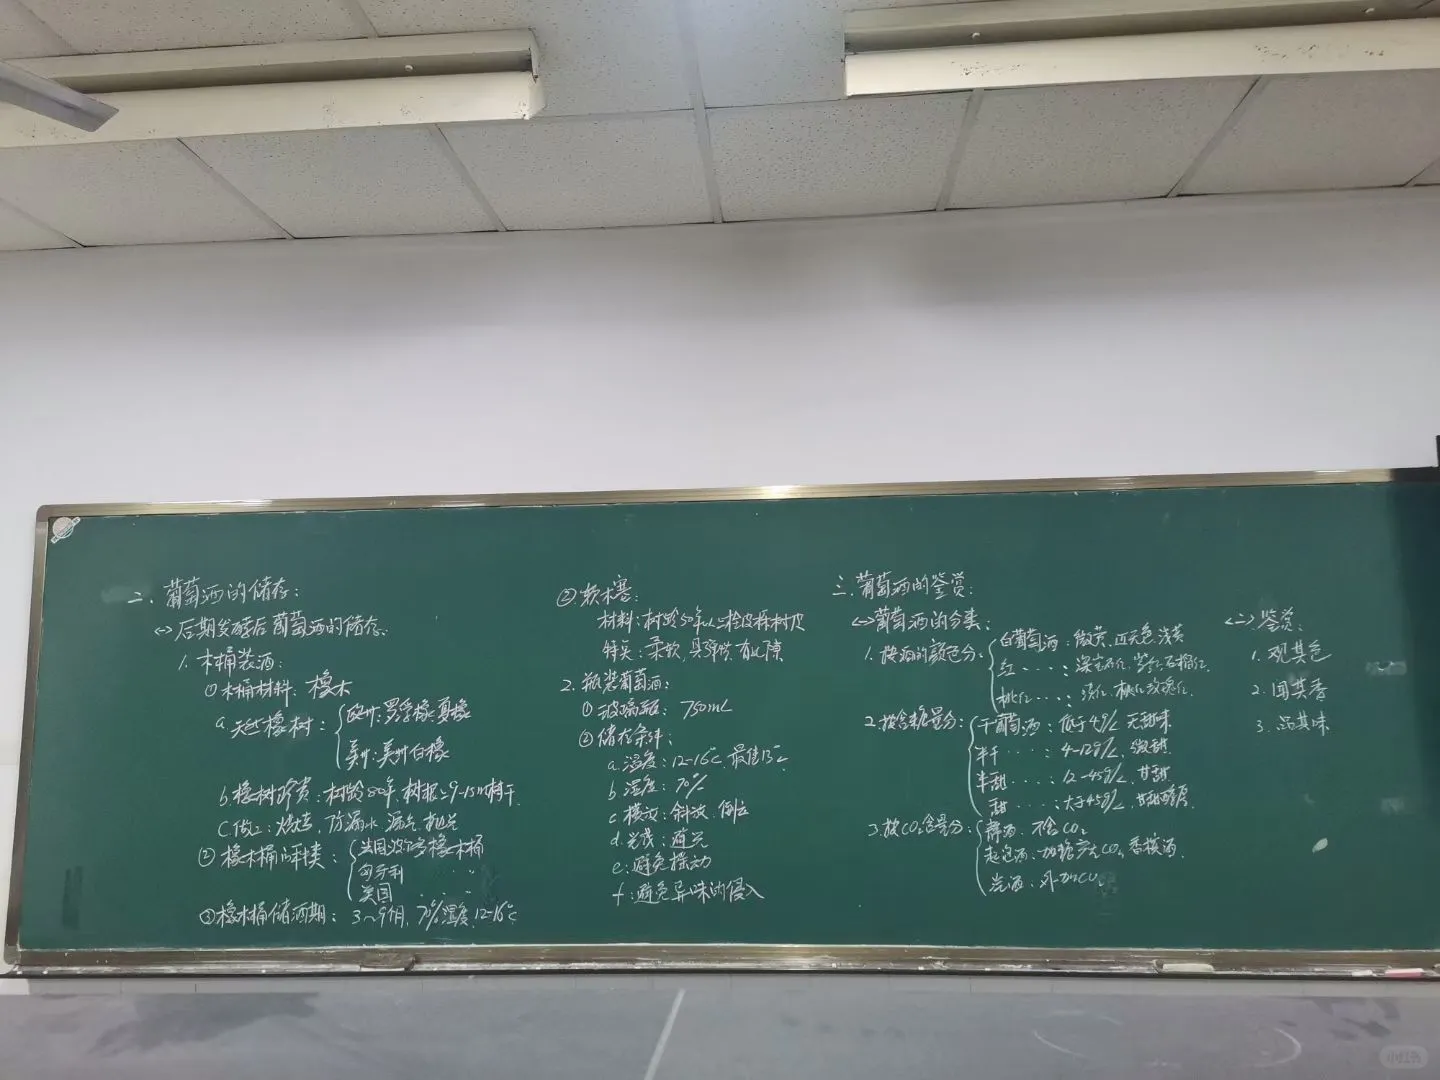 二. 葡萄酒的储存:
<一> 后期发酵后葡萄酒的储存.
1. 木桶装酒:
①木桶材料: 橡木
a. 天然橡树:
欧州: 罗浮橡. 夏橡
美州: 美州白橡
b. 橡树珍贵: 树龄80年, 树根上9-15m树干.
C. 做工: 烧烤, 防漏水, 漏气,
② 橡木桶的种类:
法国 橡木桶
匈牙利 ....
美国 ....
③橡木桶储酒期: 3~9个月, 70%湿度, 12-16℃
② 软木塞:
材料: 树龄50年以上栓皮栎树皮
特点: 柔软, 具弹性, 有孔隙
2. 瓶装葡萄酒:
① 玻璃瓶: 750mL
② 储存条件:
a. 温度: 12-16℃. 最佳13℃
b. 湿度: 70%
c. 横放: 斜放. 倒立
d. 光线: 避光
e: 避免振动
f: 避免异味的侵入
三. 葡萄酒的鉴赏:
<一> 葡萄酒的分类:
1. 按酒的颜色分:
白葡萄酒: 微黄. 近无色. 浅黄
红 ....: 深宝石红, 紫红. 石榴红.
桃红 ....: 浅红. 桃红. 玫瑰红.
2. 按含糖量分:
干葡萄酒: 低于4g/L 无甜味
半干 ....: 4-12g/L. 微甜
半甜 ....: 12-45g/L. 甘甜
甜 ....: 大于45g/L. 甘甜醇厚
3. 按CO₂含量分:
静酒: 不含CO₂
起泡酒: 加糖产生CO₂, 香槟酒.
汽酒: 外加CO₂
<二> 鉴赏:
1. 观其色
2. 闻其香
3. 品其味
小红书